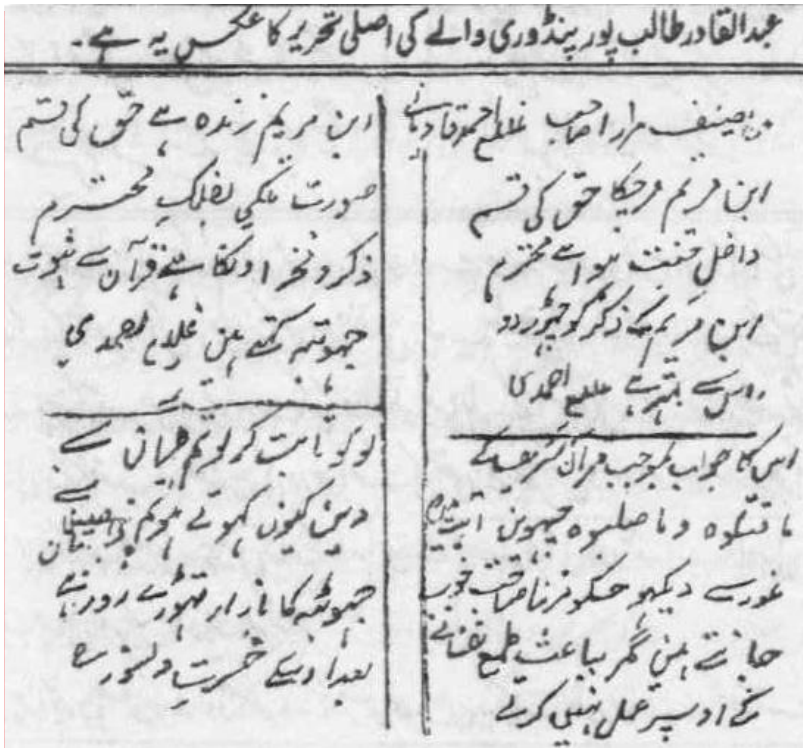 عبدالقادر طالب پور پنڈوری والے کی اصلی تحریر کا عکس یہ ہے۔
من تصنیف مرزا صاحب غلام احمد قادیانی
ابن مریم مر چکا حق کی قسم
داخل جنت ہوا ہے محترم
ابن مریم کے ذکر کو چھوڑ دو
اس سے بہتر ہے غلام احمدی
اس کا جواب بموجب قرآن شریف کے
ما قتلوہ وما صلبوہ
غور سے دیکھو جسکو فرنا
جانتے ہیں مگر بباعث طمع نفسانی
کے اوسپر عمل نہیں کرتے
ابن مریم زندہ ہے حق کی قسم
صورت ملکی بفلک محترم
ذکر و فخر اونکا ہے قرآن سے ثبوت
جھوٹہ کہتے ہیں غلام احمدی
لوگو بابت کر لو تم
دین کیوں کھوتے ہو تم
جھوٹہ کا بازار تھوڑے روز ہے
بعد اوسکے حسرت دلسوز ہے